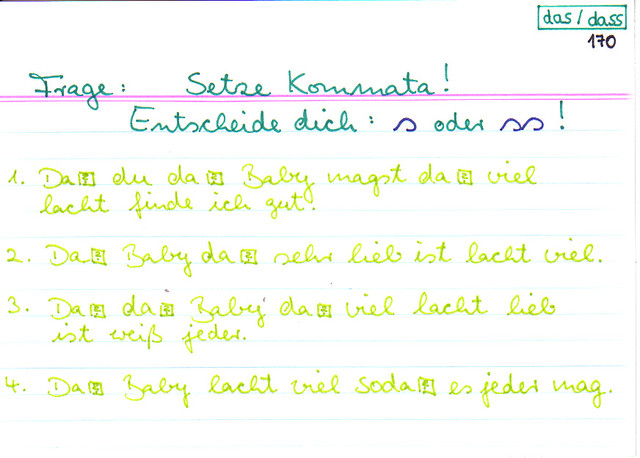 das/dass
170
Frage: Setze Kommata!
Entscheide dich: s oder ss!
1. Da▯ du da▯ Baby magst da▯ viel
lacht finde ich gut.
2. Da▯ Baby da▯ sehr lieb ist lacht viel.
3. Da▯ da▯ Baby da▯ viel lacht lieb
ist weiß jeder.
4. Da▯ Baby lacht viel soda▯ es jeder mag.